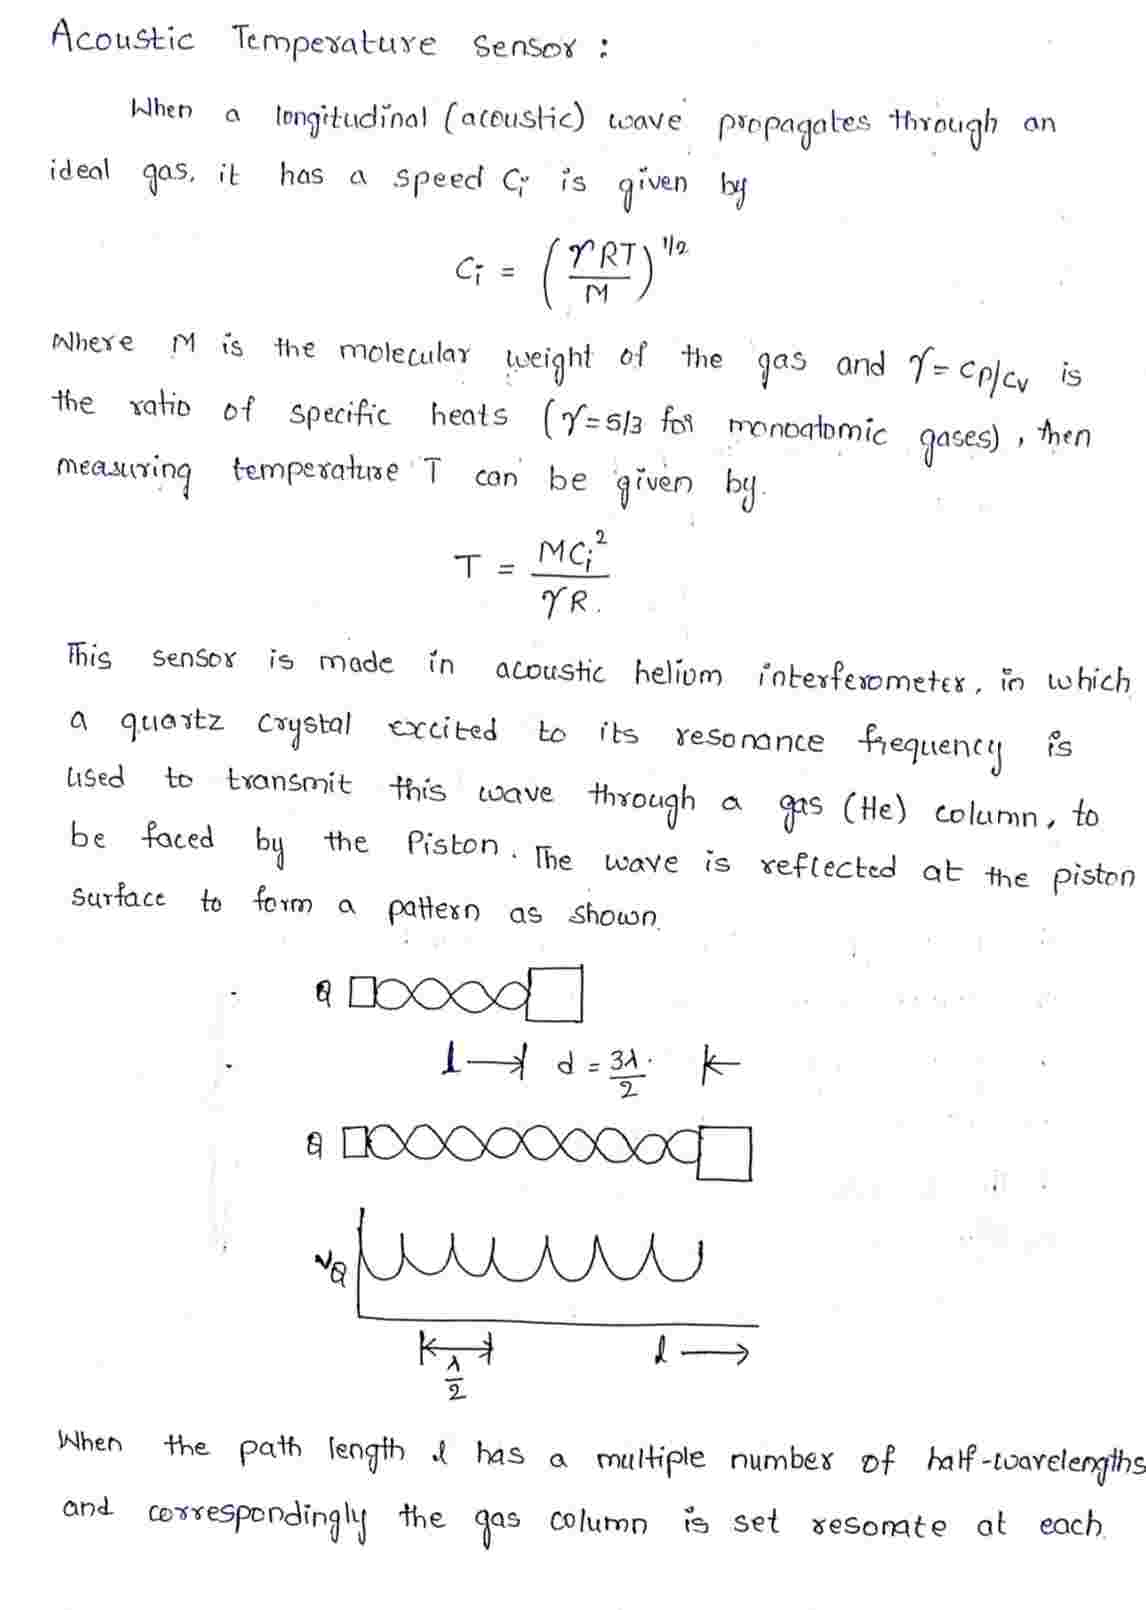 Acoustic Temperature Sensor :
When a longitudinal (acoustic) wave propagates through an
ideal gas, it has a speed Ci is given by
Ci = (γRT/M)^1/2
Where M is the molecular weight of the gas and γ = CP/CV is
the ratio of specific heats (γ = 5/3 for monoatomic gases), then
measuring temperature T can be given by.
T = MCi²/γR.
This sensor is made in acoustic helium interferometer, in which
a quartz crystal excited to its resonance frequency is
used to transmit this wave through a gas (He) column, to
be faced by the Piston. The wave is reflected at the piston
surface to form a pattern as shown.
Q
l → d = 3λ/2
Q
VQ
λ/2 l →
When the path length l has a multiple number of half-wavelengths
and correspondingly the gas column is set resonate at each